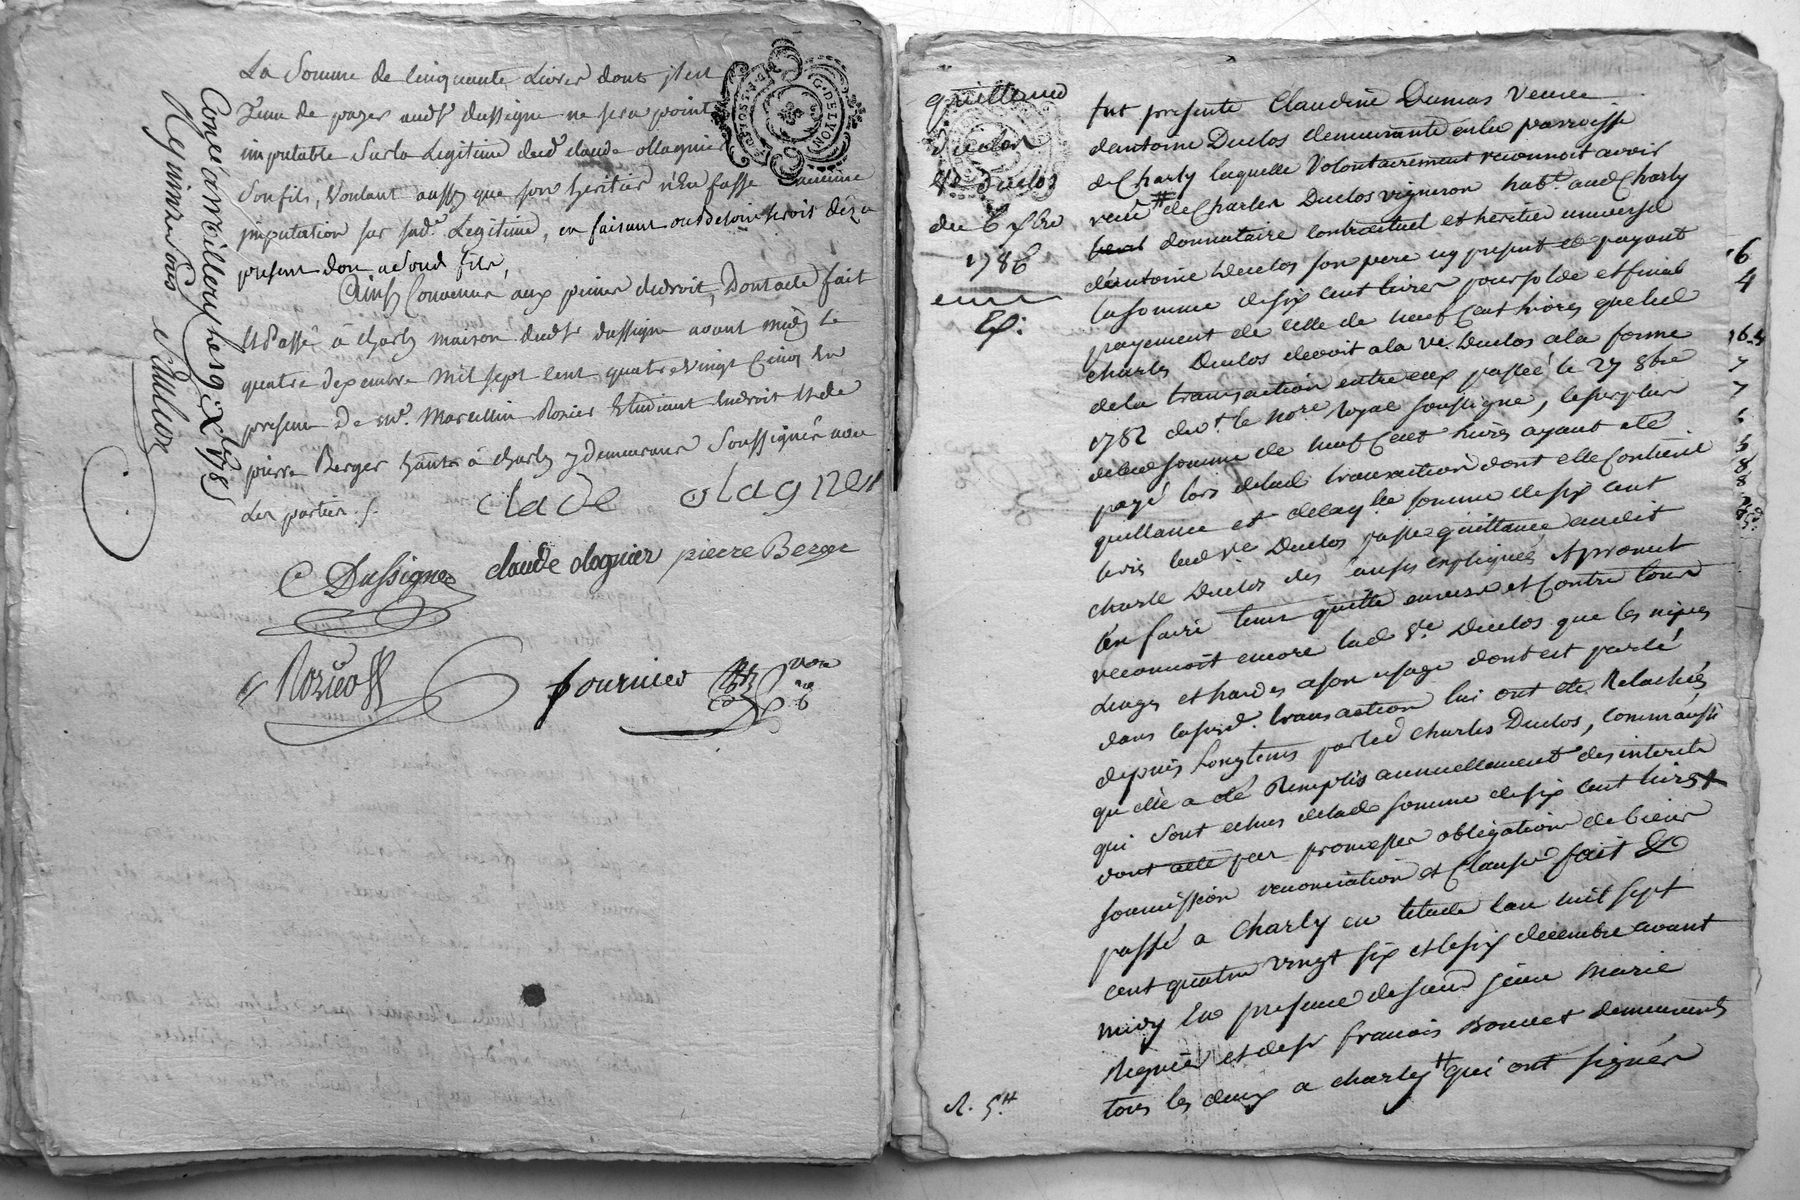 La Somme de Cinquante Livres dont il est
Tenu de payer aud.t dussigne ne sera point
imputable Sur la Legitime dud. claude ollagnier
Son fils, voulant aussy que son heritier n'En fasse aucune
imputation sur sad.e Legitime, en faisant ou de besoin seroit deja
present don a sond fils,
Ainsy Convenu aux peines de droit, Dont acte fait
Et Passé à charly maison dud.t Sr dussigne avant midy le
quatre decembre mil sept Cent quatre vingt Cinq En
presence De m.r Marcellin Rozier Etudiant En droit et de
pierre Berger hant à charly y demeurans Soussignés avec
Les parties ./.
clade olagner
C Dussigne claude olagnier pierre Berger
Rozier
fournier
G. DE LYON
quittance
Duclos
Ve Duclos
du 6 xbre
1786
Ex:
fut presente Claudine Dumas Veuve
d'antoine Duclos demeurante en la parroisse
de Charly laquelle Volontairement reconnoit avoir
receu # de Charles Duclos vigneron hab.t aud Charly
donnataire contractuel et heritier universel
d'antoine Duclos son pere icy present et payant
la somme de six cent livres pour solde et final
payement de celle de neuf Cent livres que led
charles Duclos devoit a la ve. Duclos a la forme
de la transaction entre eux passée le 27 8bre
1782 dev.t le no.re Royal soussigné, le surplus
de lad somme de neuf Cent livres ayant eté
payé lors de lad transaction dont elle Contient
quittance et de lad somme de six cent
livres lad ve Duclos passe quittance audit
charle Duclos des causes expliquées et promet
l'en faire tenir quitte envers et Contre tous
reconnoit encore lad Ve. Duclos que les nipes
Linges et hardes a son usage dont est parlé
dans la susd. transaction lui ont eté Relachés
depuis Longtems par led charles Duclos, comme aussi
qu'elle a eté Remplie annuellement des interets
qui sont echus de lad somme de six cent livres
dont acte par promesses obligation de biens
soumission renonciation et Clause fait &
passé a Charly en letude l'an mil sept
cent quatre vingt six et le six decembre avant
midy En presence de sieur jean marie
Regnier et de sr francois Bonnet demeurants
tous les deux a charly # qui ont signés
R. 5 #